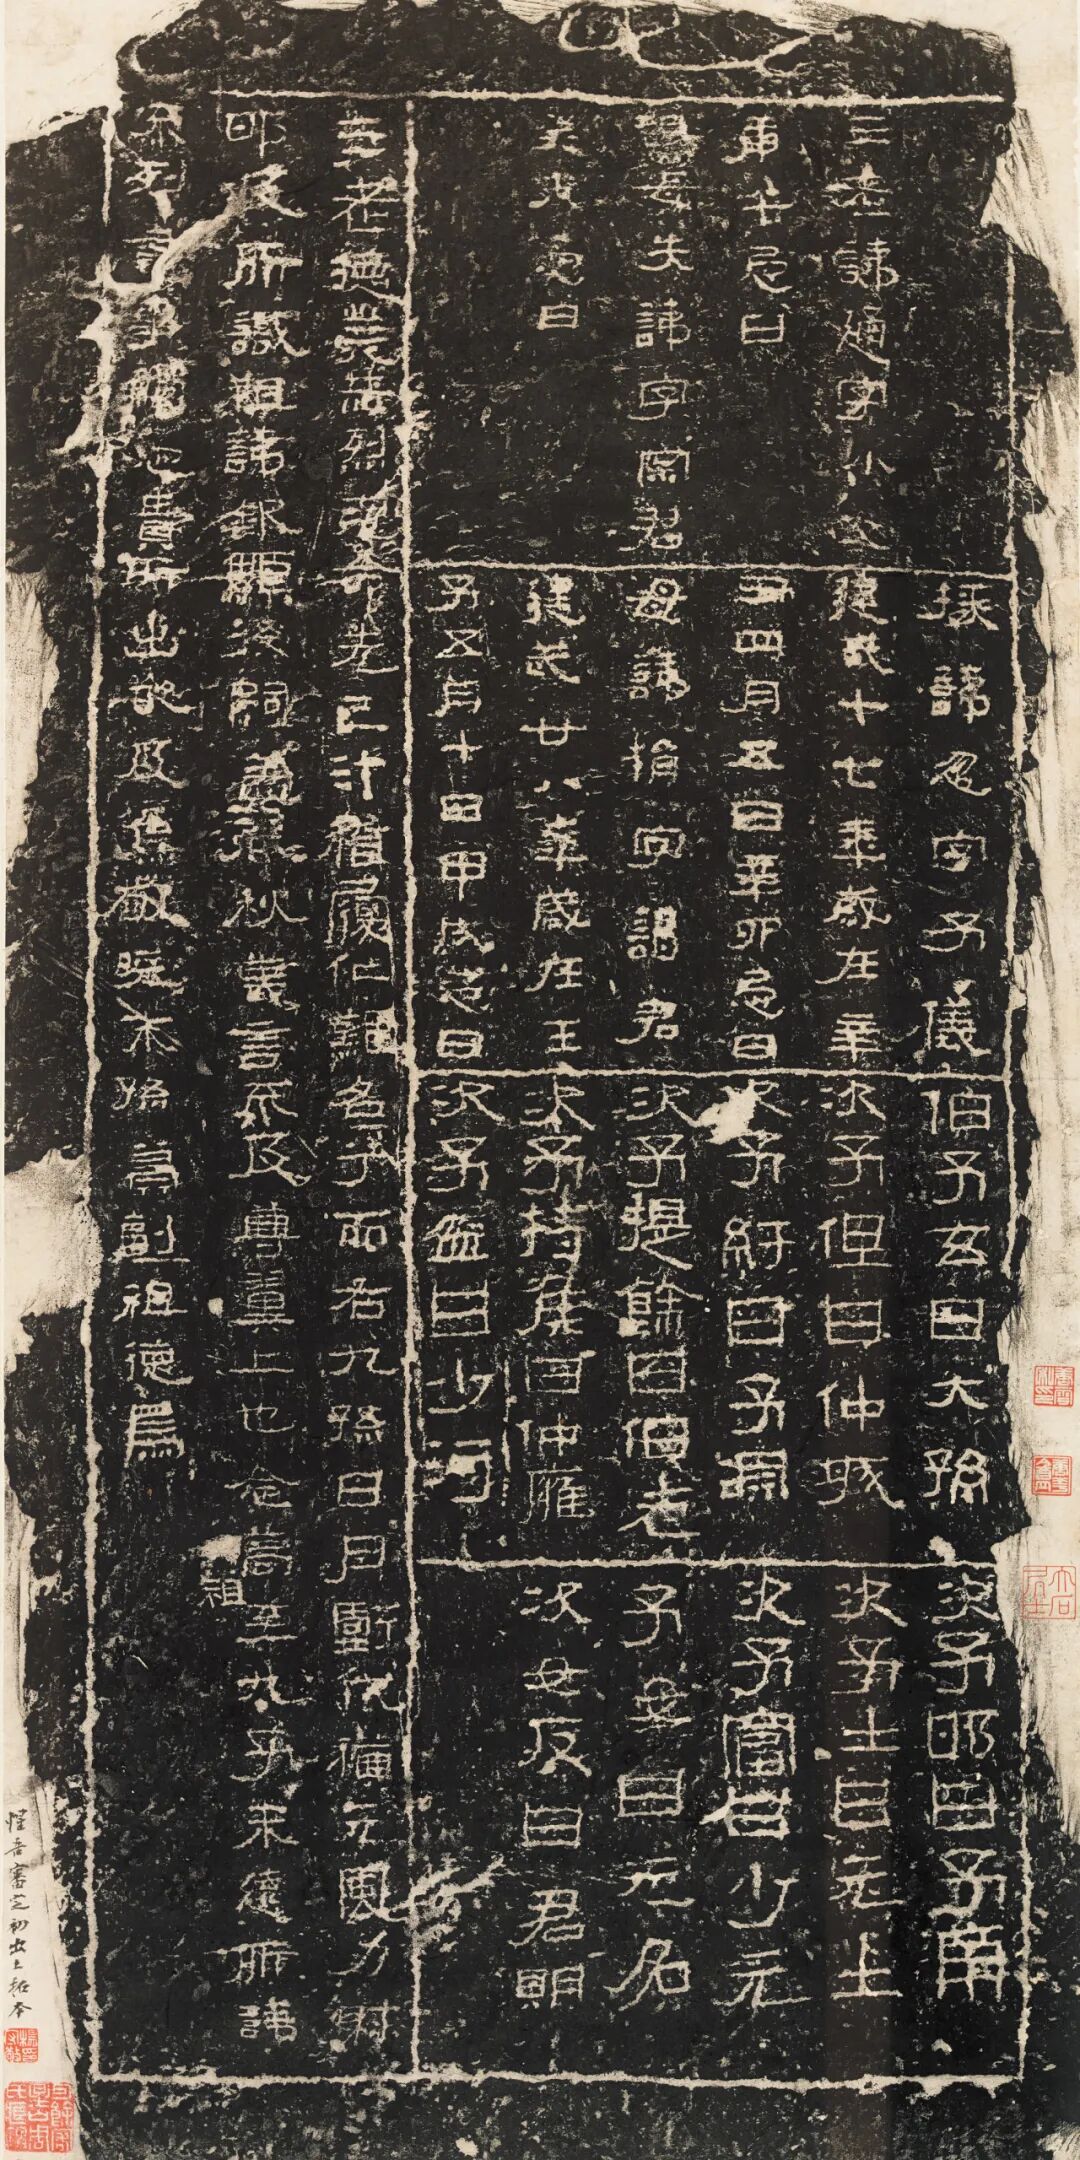 三老諱通字小父
庚午忌日
祖母失諱字宗君
癸未忌日
掾諱忽字子儀
建武十七年歲在辛
丑四月五日辛卯忌日
母諱捐字謁君
建武廿八年歲在壬
子五月十日甲戌忌日
伯子玄曰大孫
次子但曰仲城
次子紆曰子淵
次子提餘曰伯老
次子持侯曰仲雁
次子盆曰少河
次子邯曰子南
次子士曰元士
次子富曰少元
子女曰无名
次女反曰君明
三老德業赫烈克命先己汁稽履仁難名兮而右九孫日月虧代猶元風力射
邯及所識祖諱欽顯後嗣蓋春秋義言不及尊翼上也念高祖至九子未遠所諱
不列言事觸忌貴所出嚴及焦敬曉末孫冀副祖德焉
惺吾審定初出土拓本